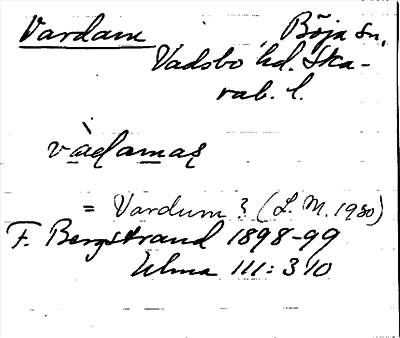 Vardam Böja sn,
Vadsbo hd. Ska-
rab. l.
vàdamas
= Vardum? (L. M. 1930)
F. Bergstrand 1898-99
Ulma 111: 310